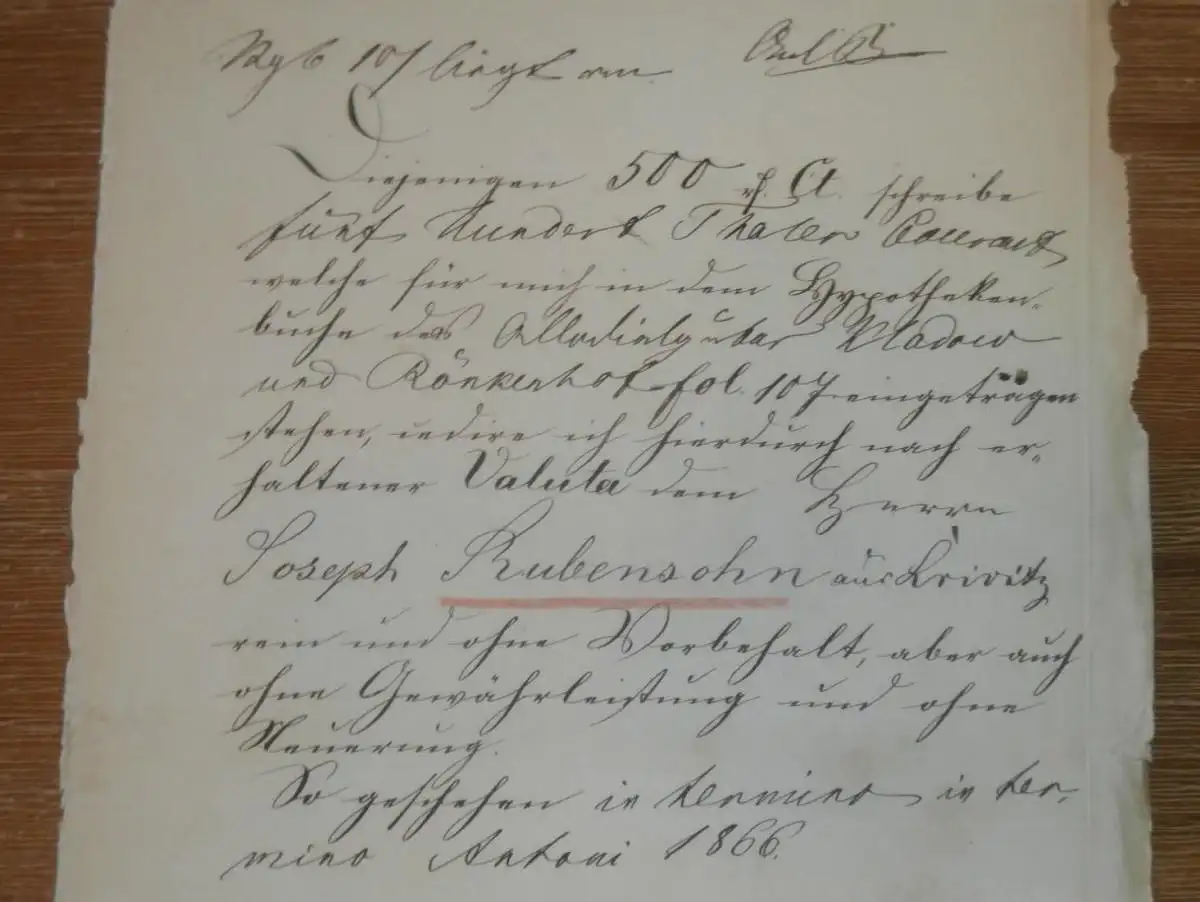 107 liegt an.
Diejenigen 500 rf. Ct. schreibe
fünf Hundert Thaler Courant
welche für mich in dem Hypotheken-
buche des Allodialgutes Kladow
und Rönkenhof fol. 107 eingetragen
stehen, cedire ich hierdurch nach er-
haltener Valuta dem Herrn
Joseph Rubensohn aus Krivitz
rein und ohne Vorbehalt, aber auch
ohne Gewährleistung und ohne
Neuerung.
So geschehen in termino in ter-
mino Antoni 1866.